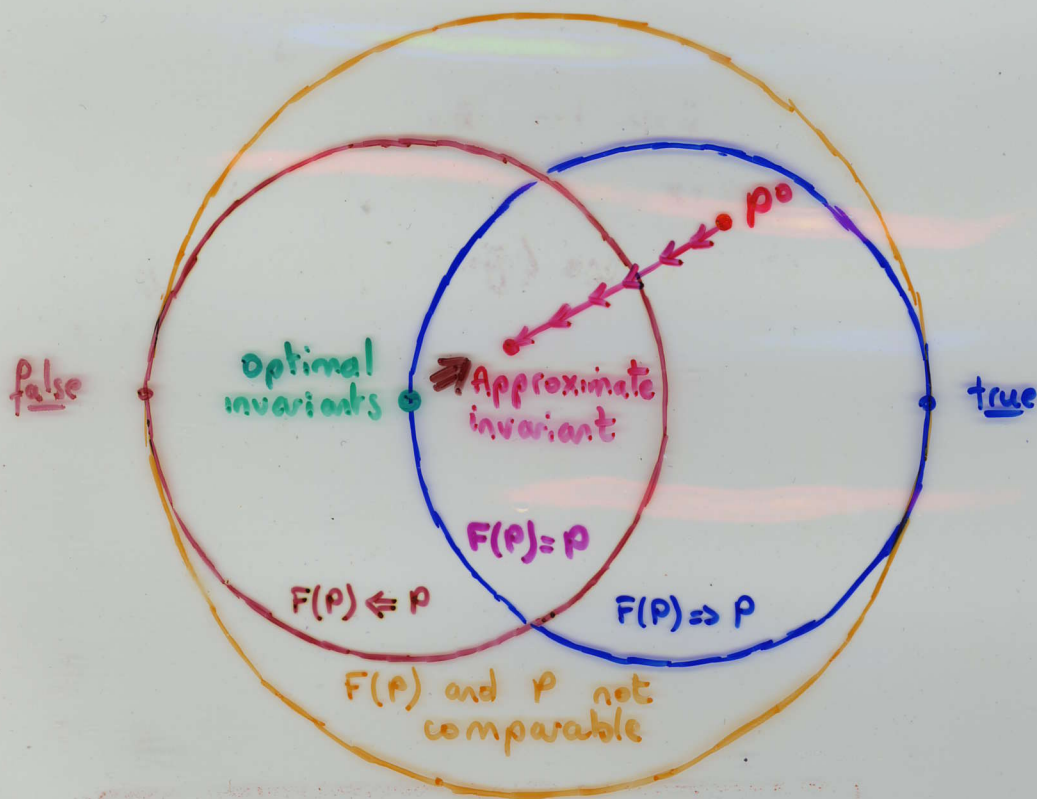 P⁰
false
Optimal
invariants
Approximate
invariant
true
F(P)=P
F(P) ⇐ P
F(P) ⇒ P
F(P) and P not
comparable